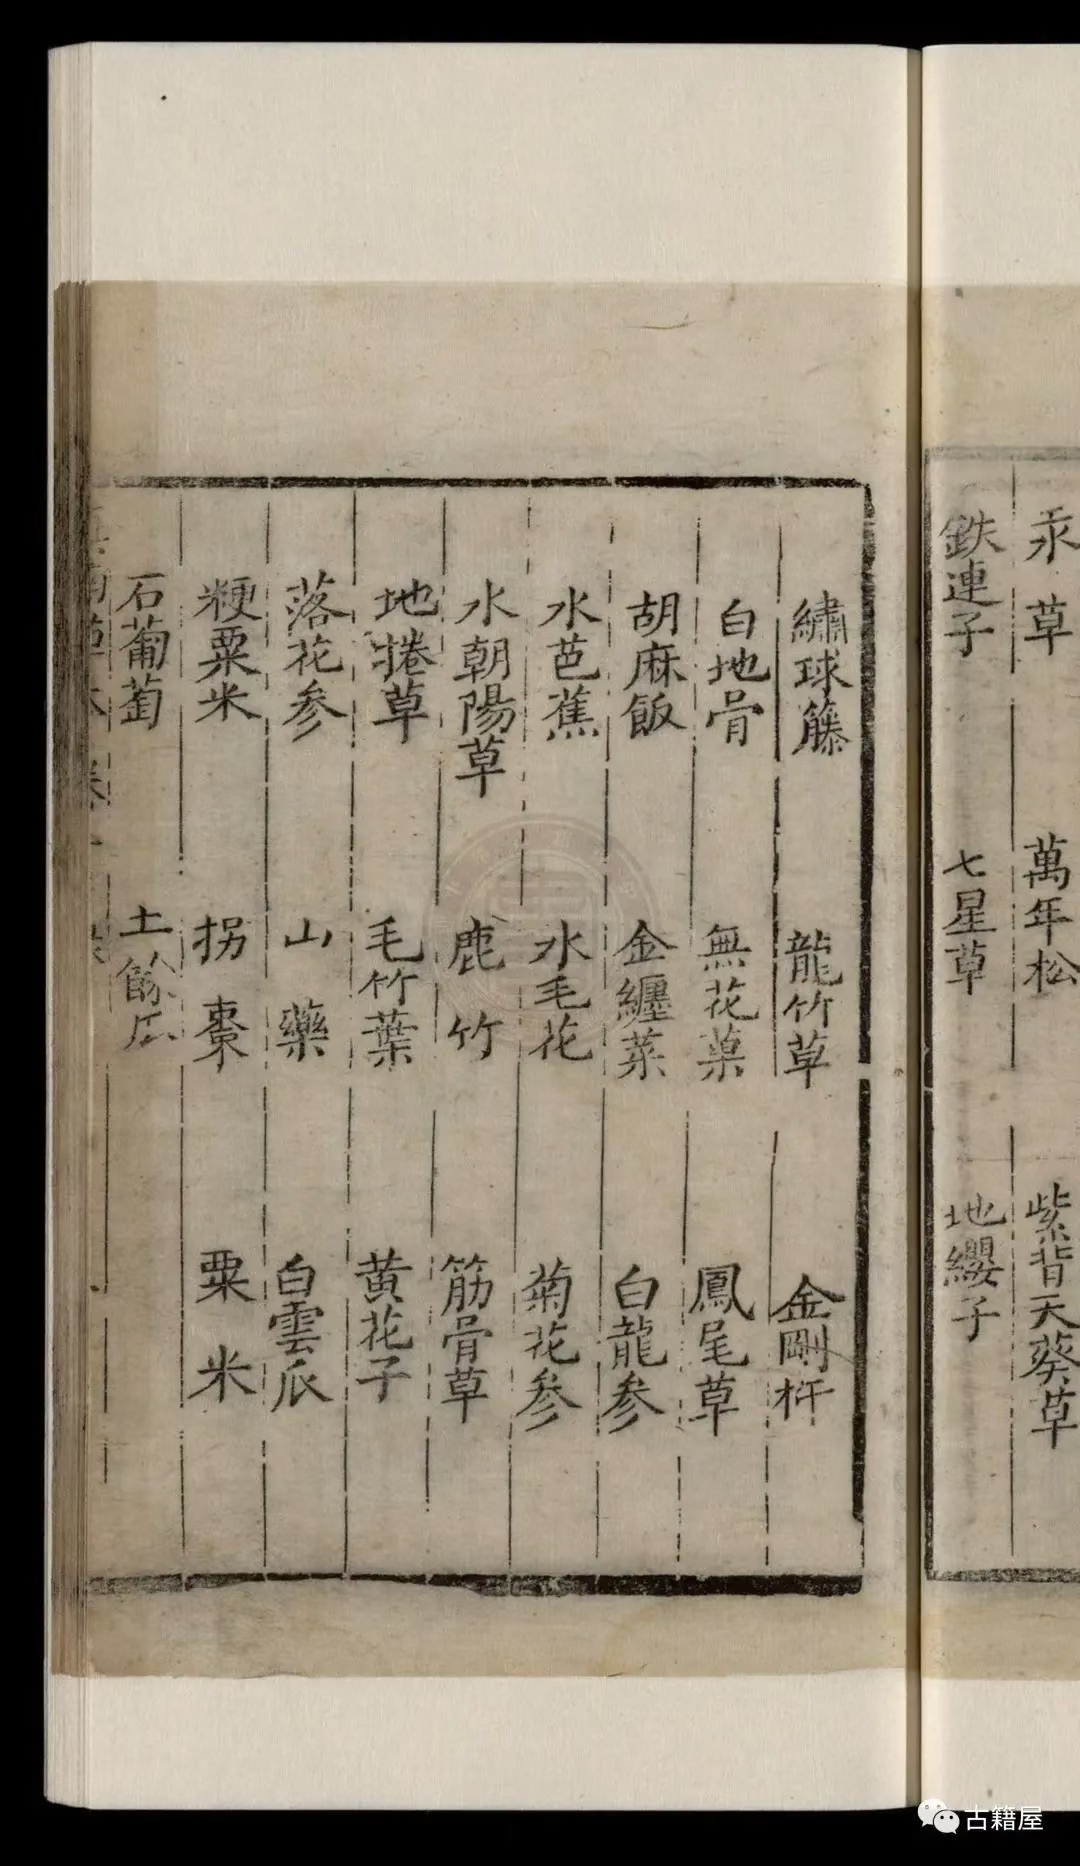 汞草 萬年松 紫背天葵草
鉄連子 七星草 地纓子
繡球籐 龍竹草 金剛杵
白地骨 無花菓 鳳尾草
胡麻飯 金纏菜 白龍参
水芭蕉 水毛花 菊花参
水朝陽草 鹿竹 筋骨草
地捲草 毛竹葉 黄花子
落花参 山藥 白雲瓜
粳粟米 拐棗 粟米
石葡萄 土餘瓜
古籍屋